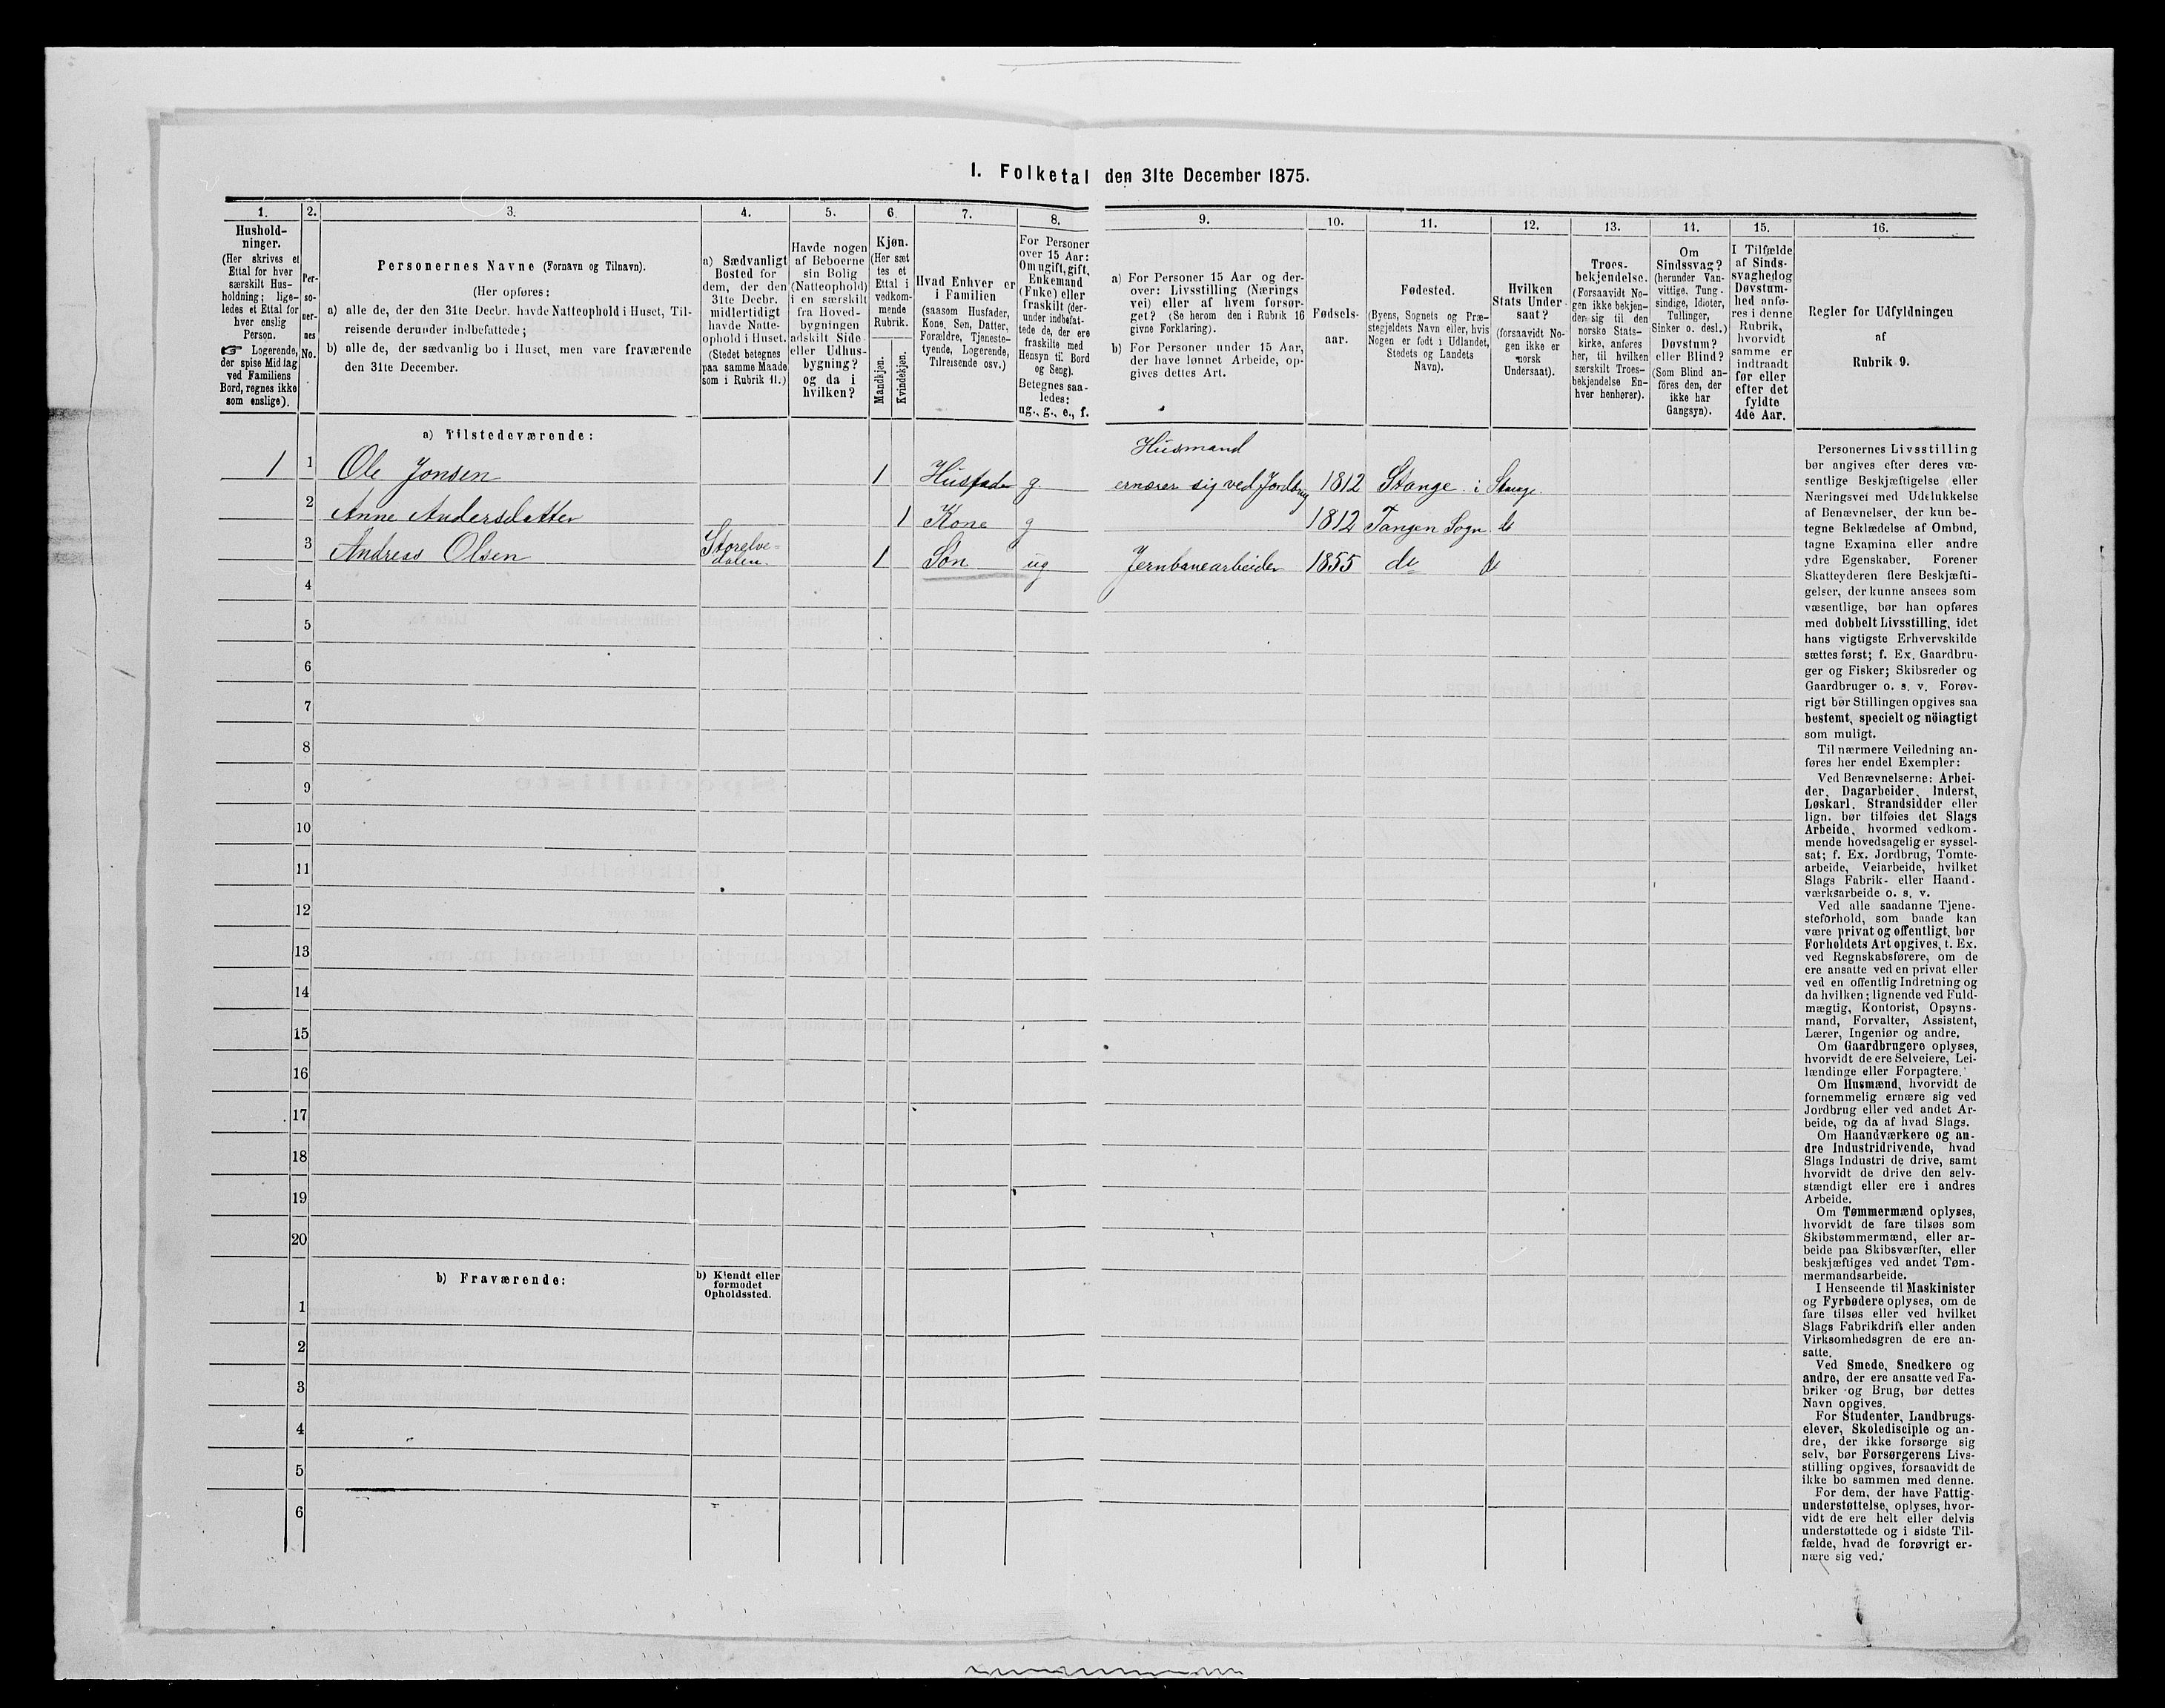 I. Folketal den 31te December 1875.
1.
Hushold-
ninger.
(Her skrives et
Ettal for hver
særskilt Hus-
holdning; lige-
ledes et Ettal for
hver enslig
Person.
☞ Logerende,
der spise Middag
ved Familiens
Bord, regnes ikke
som enslige).
2.
Per-
so-
ner-
nes
No.
3.
Personernes Navne (Fornavn og Tilnavn).
(Her opføres:
a) alle de, der den 31te Decbr. havde Natteophold i Huset, Til-
reisende derunder indbefattede;
b) alle de, der sædvanlig bo i Huset, men vare fraværende
den 31te December.
4.
a) Sædvanligt
Bosted for
dem, der den
31te Decbr.
midlertidigt
havde Natte-
ophold i Huset.
(Stedet betegnes
paa samme Maade
som i Rubrik 11.)
5.
Havde nogen
af Beboerne
sin Bolig
(Natteophold)
i en særskilt
fra Hoved-
bygningen
adskilt Side-
eller Udhus-
bygning?
og da i
hvilken?
6.
Kjøn.
(Her sæt
tes et
Ettal i
vedkom-
mende
Rubrik.
Mandkjøn.
Kvindekjøn.
7.
Hvad Enhver er
i Familien
(saasom Husfader,
Kone, Søn, Datter,
Forældre, Tjeneste-
tyende, Logerende,
Tilreisende osv.)
8.
For Personer
over 15 Aar:
Om ugift, gift,
Enkemand
(Enke) eller
fraskilt (der-
under indbefat-
tede de, der ere
fraskilte med
Hensyn til Bord
og Seng).
Betegnes saa-
ledes:
ug., g., e., f.
9.
a) For Personer 15 Aar og der-
over: Livsstilling (Nærings
vei) eller af hvem forsør-
get? (Se herom den i Rubrik 16
givne Forklaring).
b) For Personer under 15 Aar,
der have lønnet Arbeide, op-
gives dettes Art.
10.
Fødsels-
aar.
11.
Fødested.
(Byens, Sognets og Præ-
stegjeldets Navn eller, hvis
Nogen er født i Udlandet,
Stedets og Landets
Navn).
12.
Hvilken
Stats Under-
saat?
(forsaavidt No-
gen ikke er
norsk
Undersaat).
13.
Troes-
bekjendelse.
(Forsaavidt No-
gen ikke bekjen-
der sig til den
norske Stats-
kirke, anføres
her, til hvilken
særskilt Troes-
bekjendelse En-
hver henhører).
14.
Om
Sindssvag?
(herunder Van-
vittige, Tung-
sindige, Idioter,
Tullinger,
Sinker o. desl.)
Døvstum?
eller Blind?
(Som Blind an-
føres den, der
ikke har
Gangsyn).
15.
I Tilfælde
af Sinds-
svaghed og
Døvstum-
hed anfø-
res i denne
Rubrik,
hvorvidt
samme er
indtraadt
før eller
efter det
fyldte
4de Aar.
16.
Regler for Udfyldningen
af
Rubrik 9.
a) Tilstedeværende:
1 1 Ole Jonsen 1 Husfader g. Husmand ernærer sig ved Jordbrug 1812 Stange i Stange
2 Anne Andersdatter 1 Kone g 1812 Tangen Sogn do
3 Andreas Olsen Storelve-dalen. 1 Søn ug Jernbanearbeider 1855 do do
4
5
6
7
8
9
10
11
12
13
14
15
16
17
18
19
20
b) Fraværende:
b) Kjendt eller
formodet
Opholdssted.
1
2
3
4
5
6
Personernes Livsstilling
bør angives efter deres væ-
sentlige Beskjæftigelse eller
Næringsvei med Udelukkelse
af Benævnelser, der kun be-
tegne Beklædelse af Ombud,
tagne Examina eller andre
ydre Egenskaber. Forener
Skatteyderen flere Beskjæfti-
gelser, der kunne ansees som
væsentlige, bør han opføres
med dobbelt Livsstilling, idet
hans vigtigste Erhvervskilde
sættes først; f. Ex. Gaardbru-
ger og Fisker; Skibsreder og
Gaardbruger o. s. v. Forøv-
rigt bør Stillingen opgives saa
bestemt, specielt og nöiagtigt
som muligt.
Til nærmere Veiledning an-
føres her endel Exempler:
Ved Benævnelserne: Arbei-
der, Dagarbeider, Inderst,
Løskarl, Strandsidder eller
lign. bør tilføies det Slags
Arbeide, hvormed vedkom-
mende hovedsagelig er syssel-
sat; f. Ex. Jordbrug, Tomte-
arbeide, Veiarbeide, hvilket
Slags Fabrik- eller Haand-
værksarbeide o. s. v.
Ved alle saadanne Tjene-
steforhold, som baade kan
være privat og offentligt, bør
Forholdets Art opgives, t. Ex.
ved Regnskabsførere, om de
ere ansatte ved en privat eller
ved en offentlig Indretning og
da hvilken; lignende ved Fuld-
mægtig, Kontorist, Opsyns-
mand, Forvalter, Assistent,
Lærer, Ingeniør og andre.
Om Gaardbrugere oplyses,
hvorvidt de ere Selveiere, Lei-
lændinge eller Forpagtere.
Om Husmænd, hvorvidt de
fornemmelig ernære sig ved
Jordbrug eller ved andet Ar-
beide, og da af hvad Slags.
Om Haandværkere og an-
dre Industridrivende, hvad
Slags Industri de drive, samt
hvorvidt de drive den selv-
stændigt eller ere i andres
Arbeide.
Om Tømmermænd oplyses,
hvorvidt de fare tilsøs som
Skibstømmermænd, eller ar-
beide paa Skibsværfter, eller
beskjæftiges ved andet Tøm-
mermandsarbeide.
I Henseende til Maskinister
og Fyrbødere oplyses, om de
fare tilsøs eller ved hvilket
Slags Fabrikdrift eller anden
Virksomhedsgren de ere an-
satte.
Ved Smede, Snedkere og
andre, der ere ansatte ved Fa-
briker og Brug, bør dettes
Navn opgives.
For Studenter, Landbrugs-
elever, Skoledisciple og an-
dre, der ikke forsørge sig
selv, bør Forsørgerens Livs-
stilling opgives, forsaavidt de
ikke bo sammen med denne.
For dem, der have Fattig-
understøttelse, oplyses, hvor-
vidt de ere helt eller delvis
understøttede og i sidste Til-
fælde, hvad de forøvrigt er-
nære sig ved.